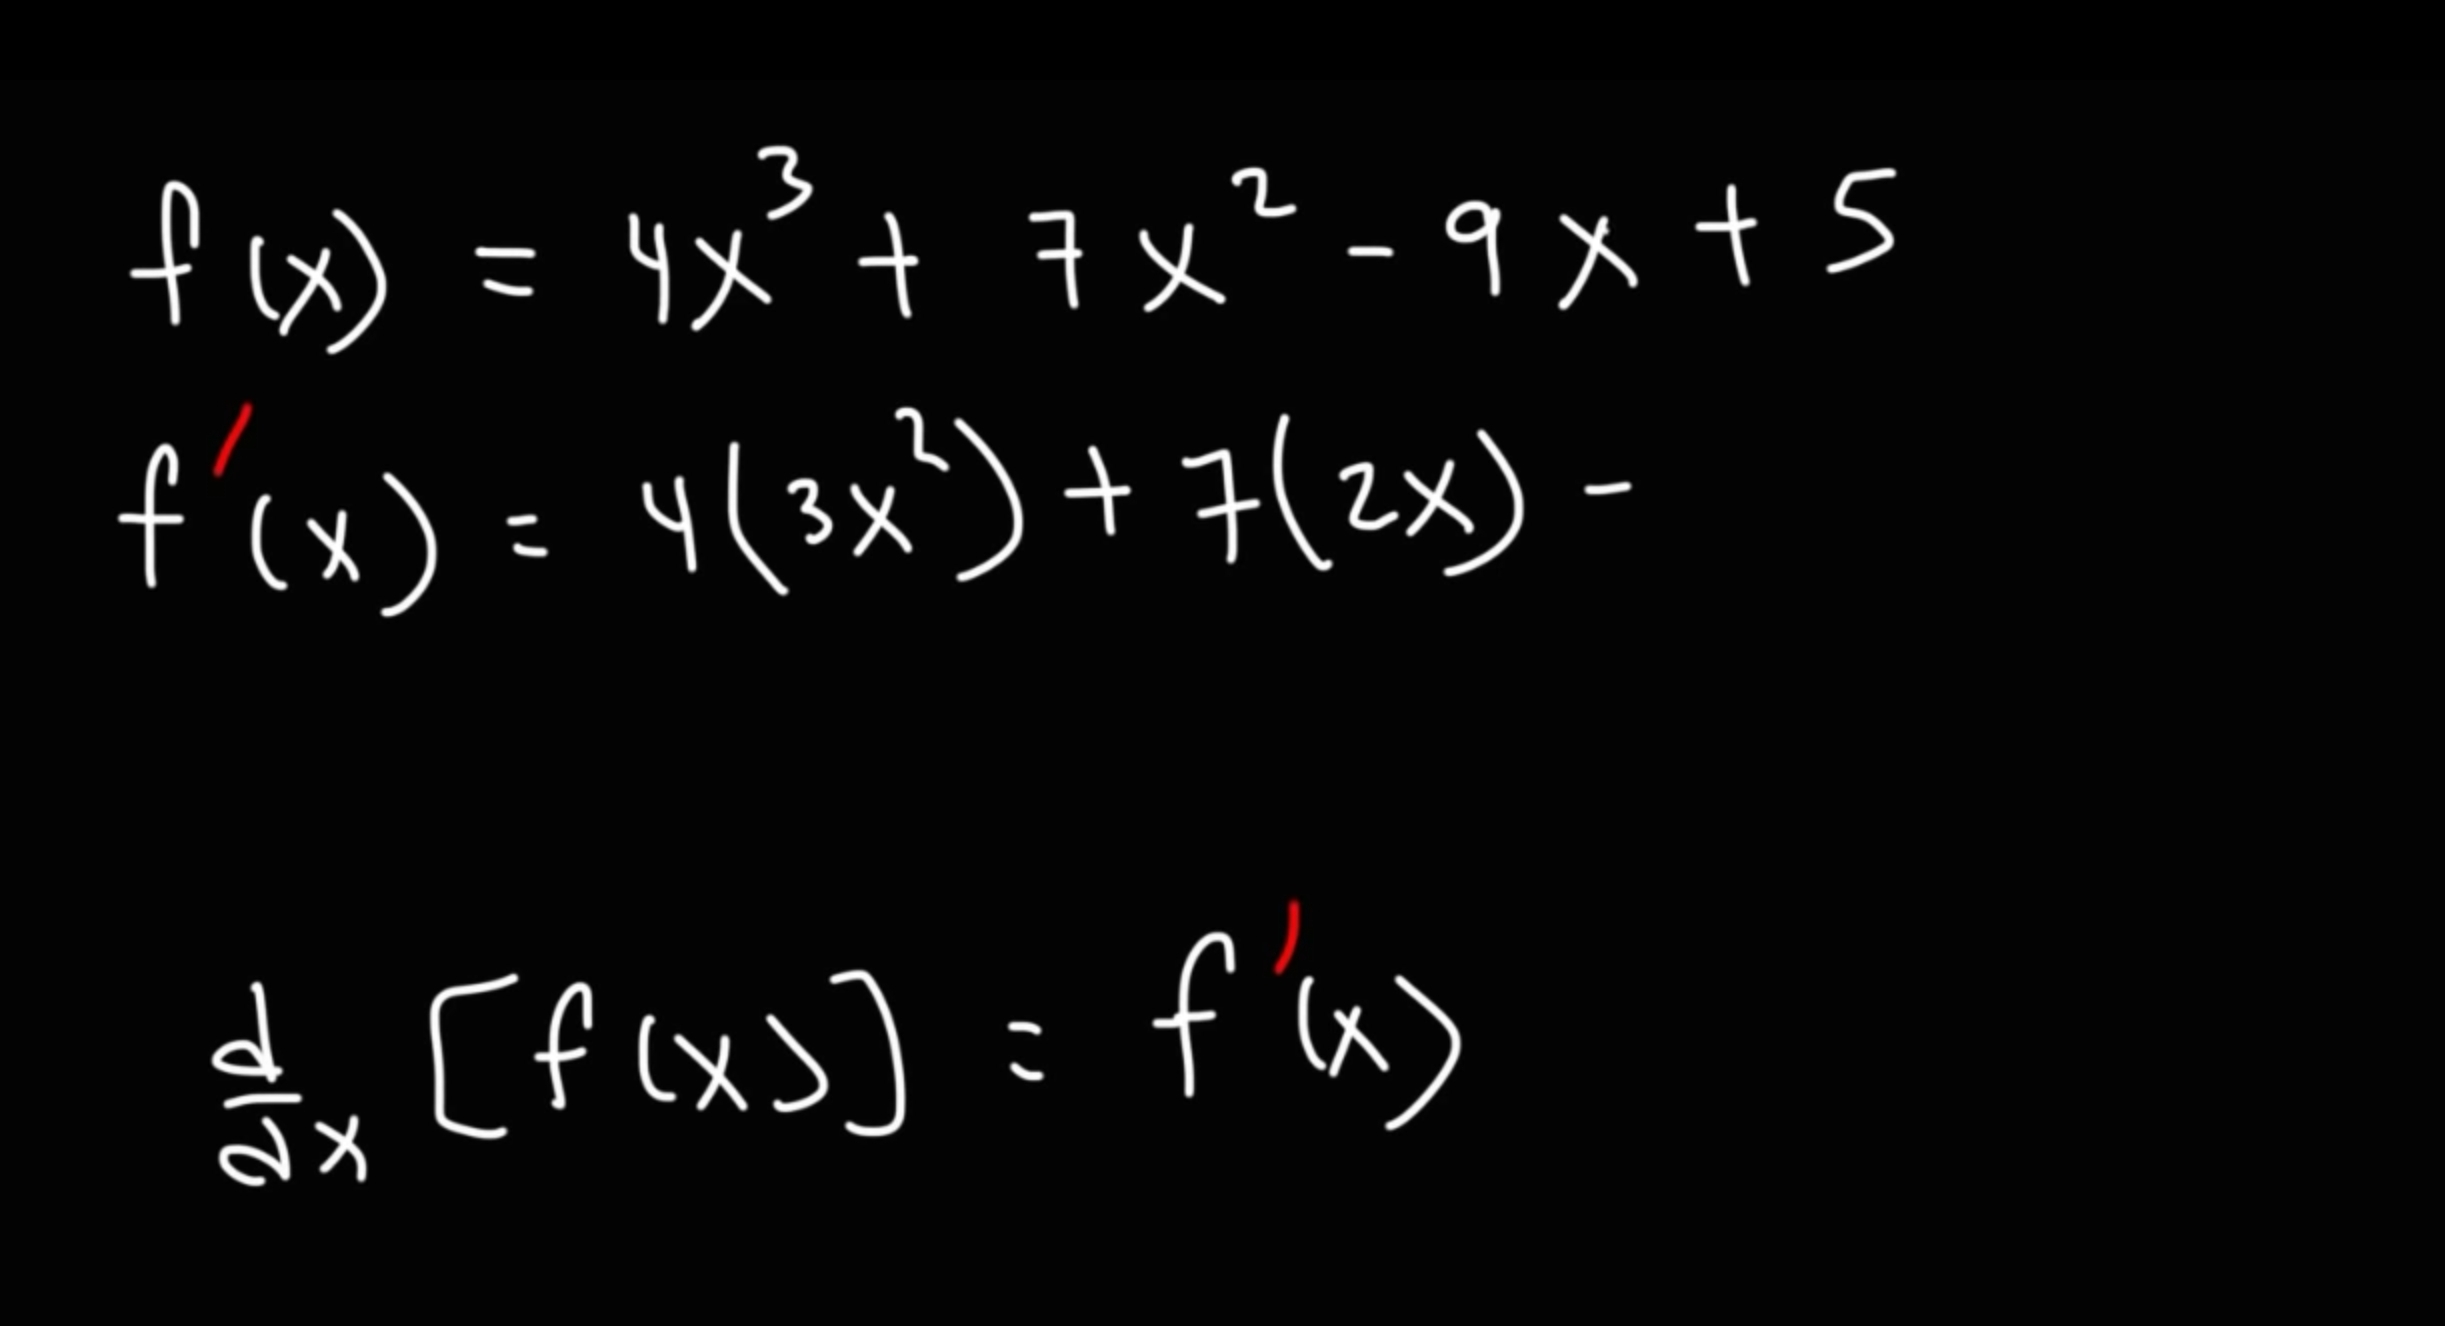 f(x) = 4x³ + 7x² - 9x + 5
f'(x) = 4(3x²) + 7(2x) -
d/dx [f(x)] = f'(x)